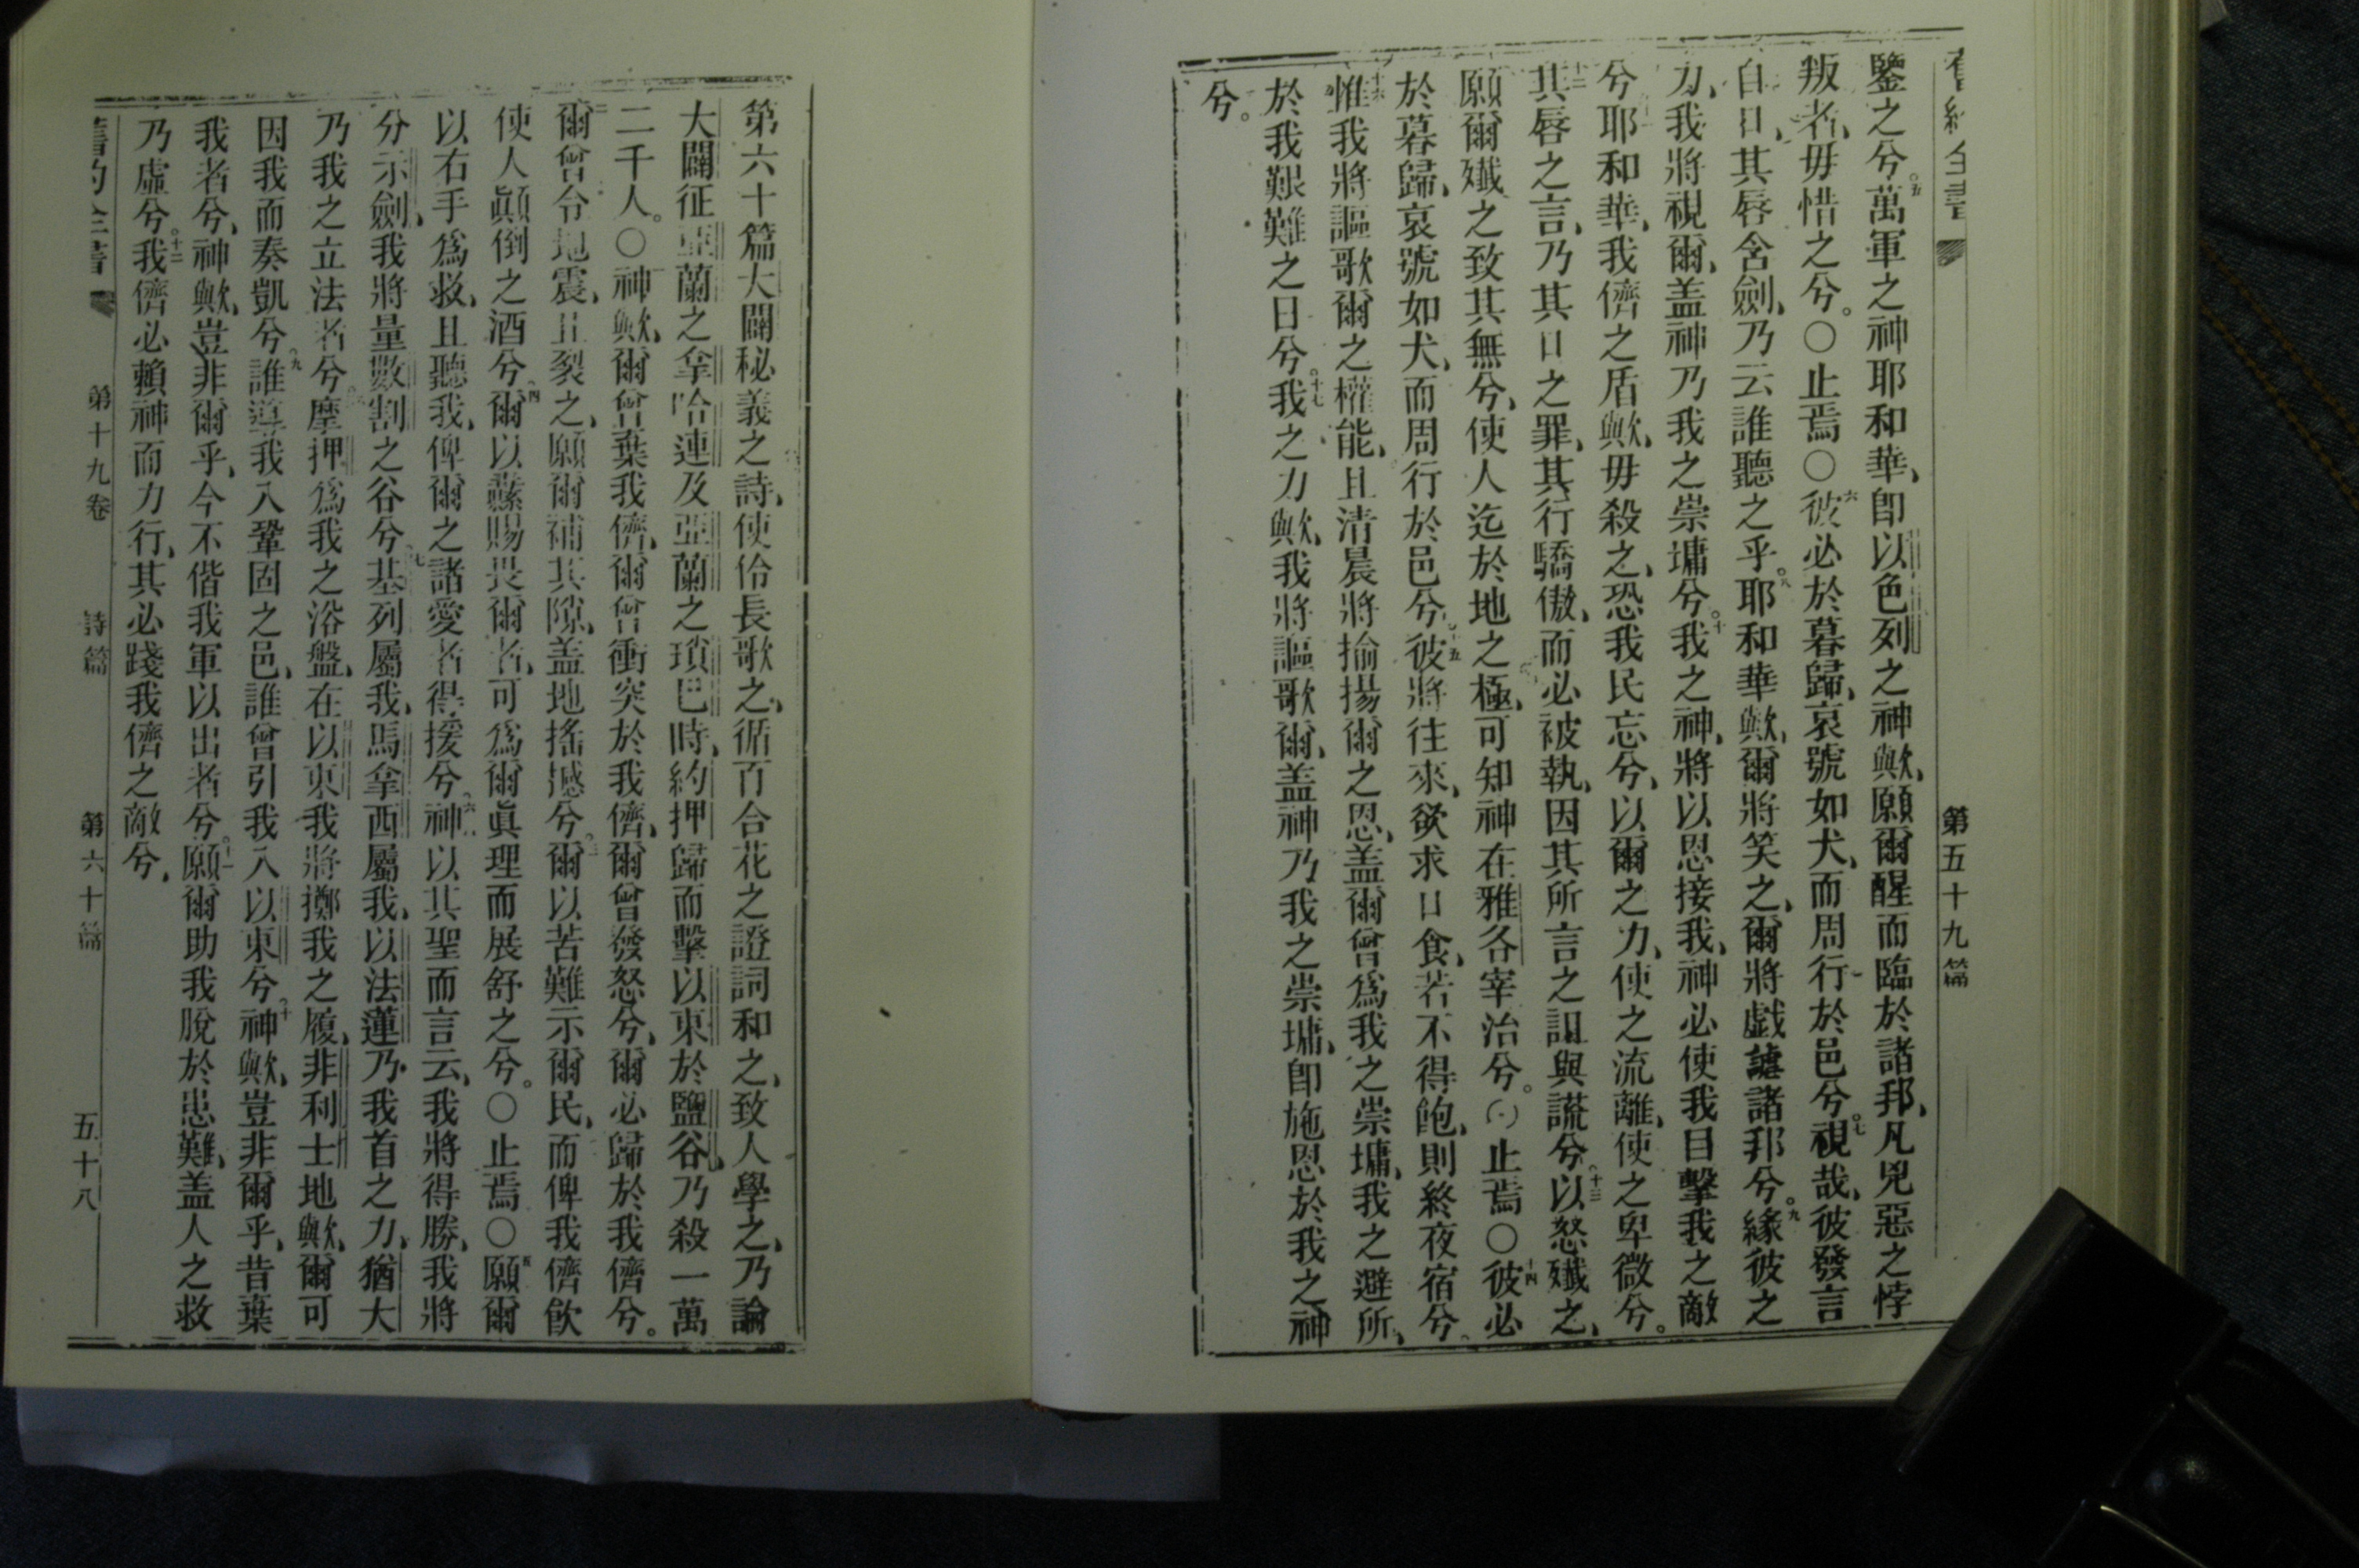 第五十九篇
鑒之兮。五萬軍之神耶和華、卽以色列之神歟、願爾醒而臨於諸邦、凡兇惡之悖
叛者、毋惜之兮。〇止焉〇六彼必於暮歸、哀號如犬、而周行於邑兮。七視哉、彼發言
自口、其唇含劍、乃云誰聽之乎。八耶和華歟、爾將笑之、爾將戲謔諸邦兮。九緣彼之
力、我將視爾、盖神乃我之崇墉兮。十我之神、將以恩接我、神必使我目擊我之敵
兮、耶和華、我儕之盾歟、毋殺之、恐我民忘兮、以爾之力、使之流離、使之卑微兮。
十二其唇之言、乃其口之罪、其行驕傲、而必被執、因其所言之詛與謊兮。十三以怒殲之、
願爾殲之致其無兮、使人迄於地之極、可知神在雅各宰治兮。〇止焉〇十四彼必
於暮歸、哀號如犬、而周行於邑兮。十五彼將往來、欲求口食、若不得飽、則終夜宿兮。
十六惟我將謳歌爾之權能、且清晨將揄揚爾之恩、盖爾曾爲我之崇墉、我之避所、
於我艱難之日兮。十七我之力歟、我將謳歌爾、盖神乃我之崇墉、卽施恩於我之神
兮。
第六十篇大闢秘義之詩、使伶長歌之、循百合花之證詞和之、致人學之、乃論
大闢征亞蘭之拿哈連及亞蘭之瑣巴時、約押歸而擊以東於鹽谷、乃殺一萬
二千人。〇神歟、爾曾棄我儕、爾曾衝突於我儕、爾曾發怒兮、爾必歸於我儕兮。
二爾曾令地震、且裂之、願爾補其隙、盖地搖撼兮。三爾以苦難示爾民、而俾我儕飲
使人顚倒之酒兮。四爾以纛賜畏爾者、可爲爾眞理而展舒之兮。〇止焉〇五願爾
以右手爲救、且聽我、俾爾之諸愛者得援兮。六神以其聖而言云、我將得勝、我將
分示劍、我將量數割之谷兮。七基列屬我、馬拿西屬我、以法蓮乃我首之力、猶大
乃我之立法者兮。八摩押爲我之浴盤、在以東我將擲我之履、非利士地歟、爾可
因我而奏凱兮。九誰導我入鞏固之邑、誰曾引我入以東兮。十神歟、豈非爾乎、昔棄
我者兮、神歟、豈非爾乎、今不偕我軍以出者兮。十一願爾助我脫於患難、盖人之救
乃虛兮。十二我儕必賴神而力行、其必踐我儕之敵兮、
舊約全書 第十九卷 詩篇 第六十篇 五十八